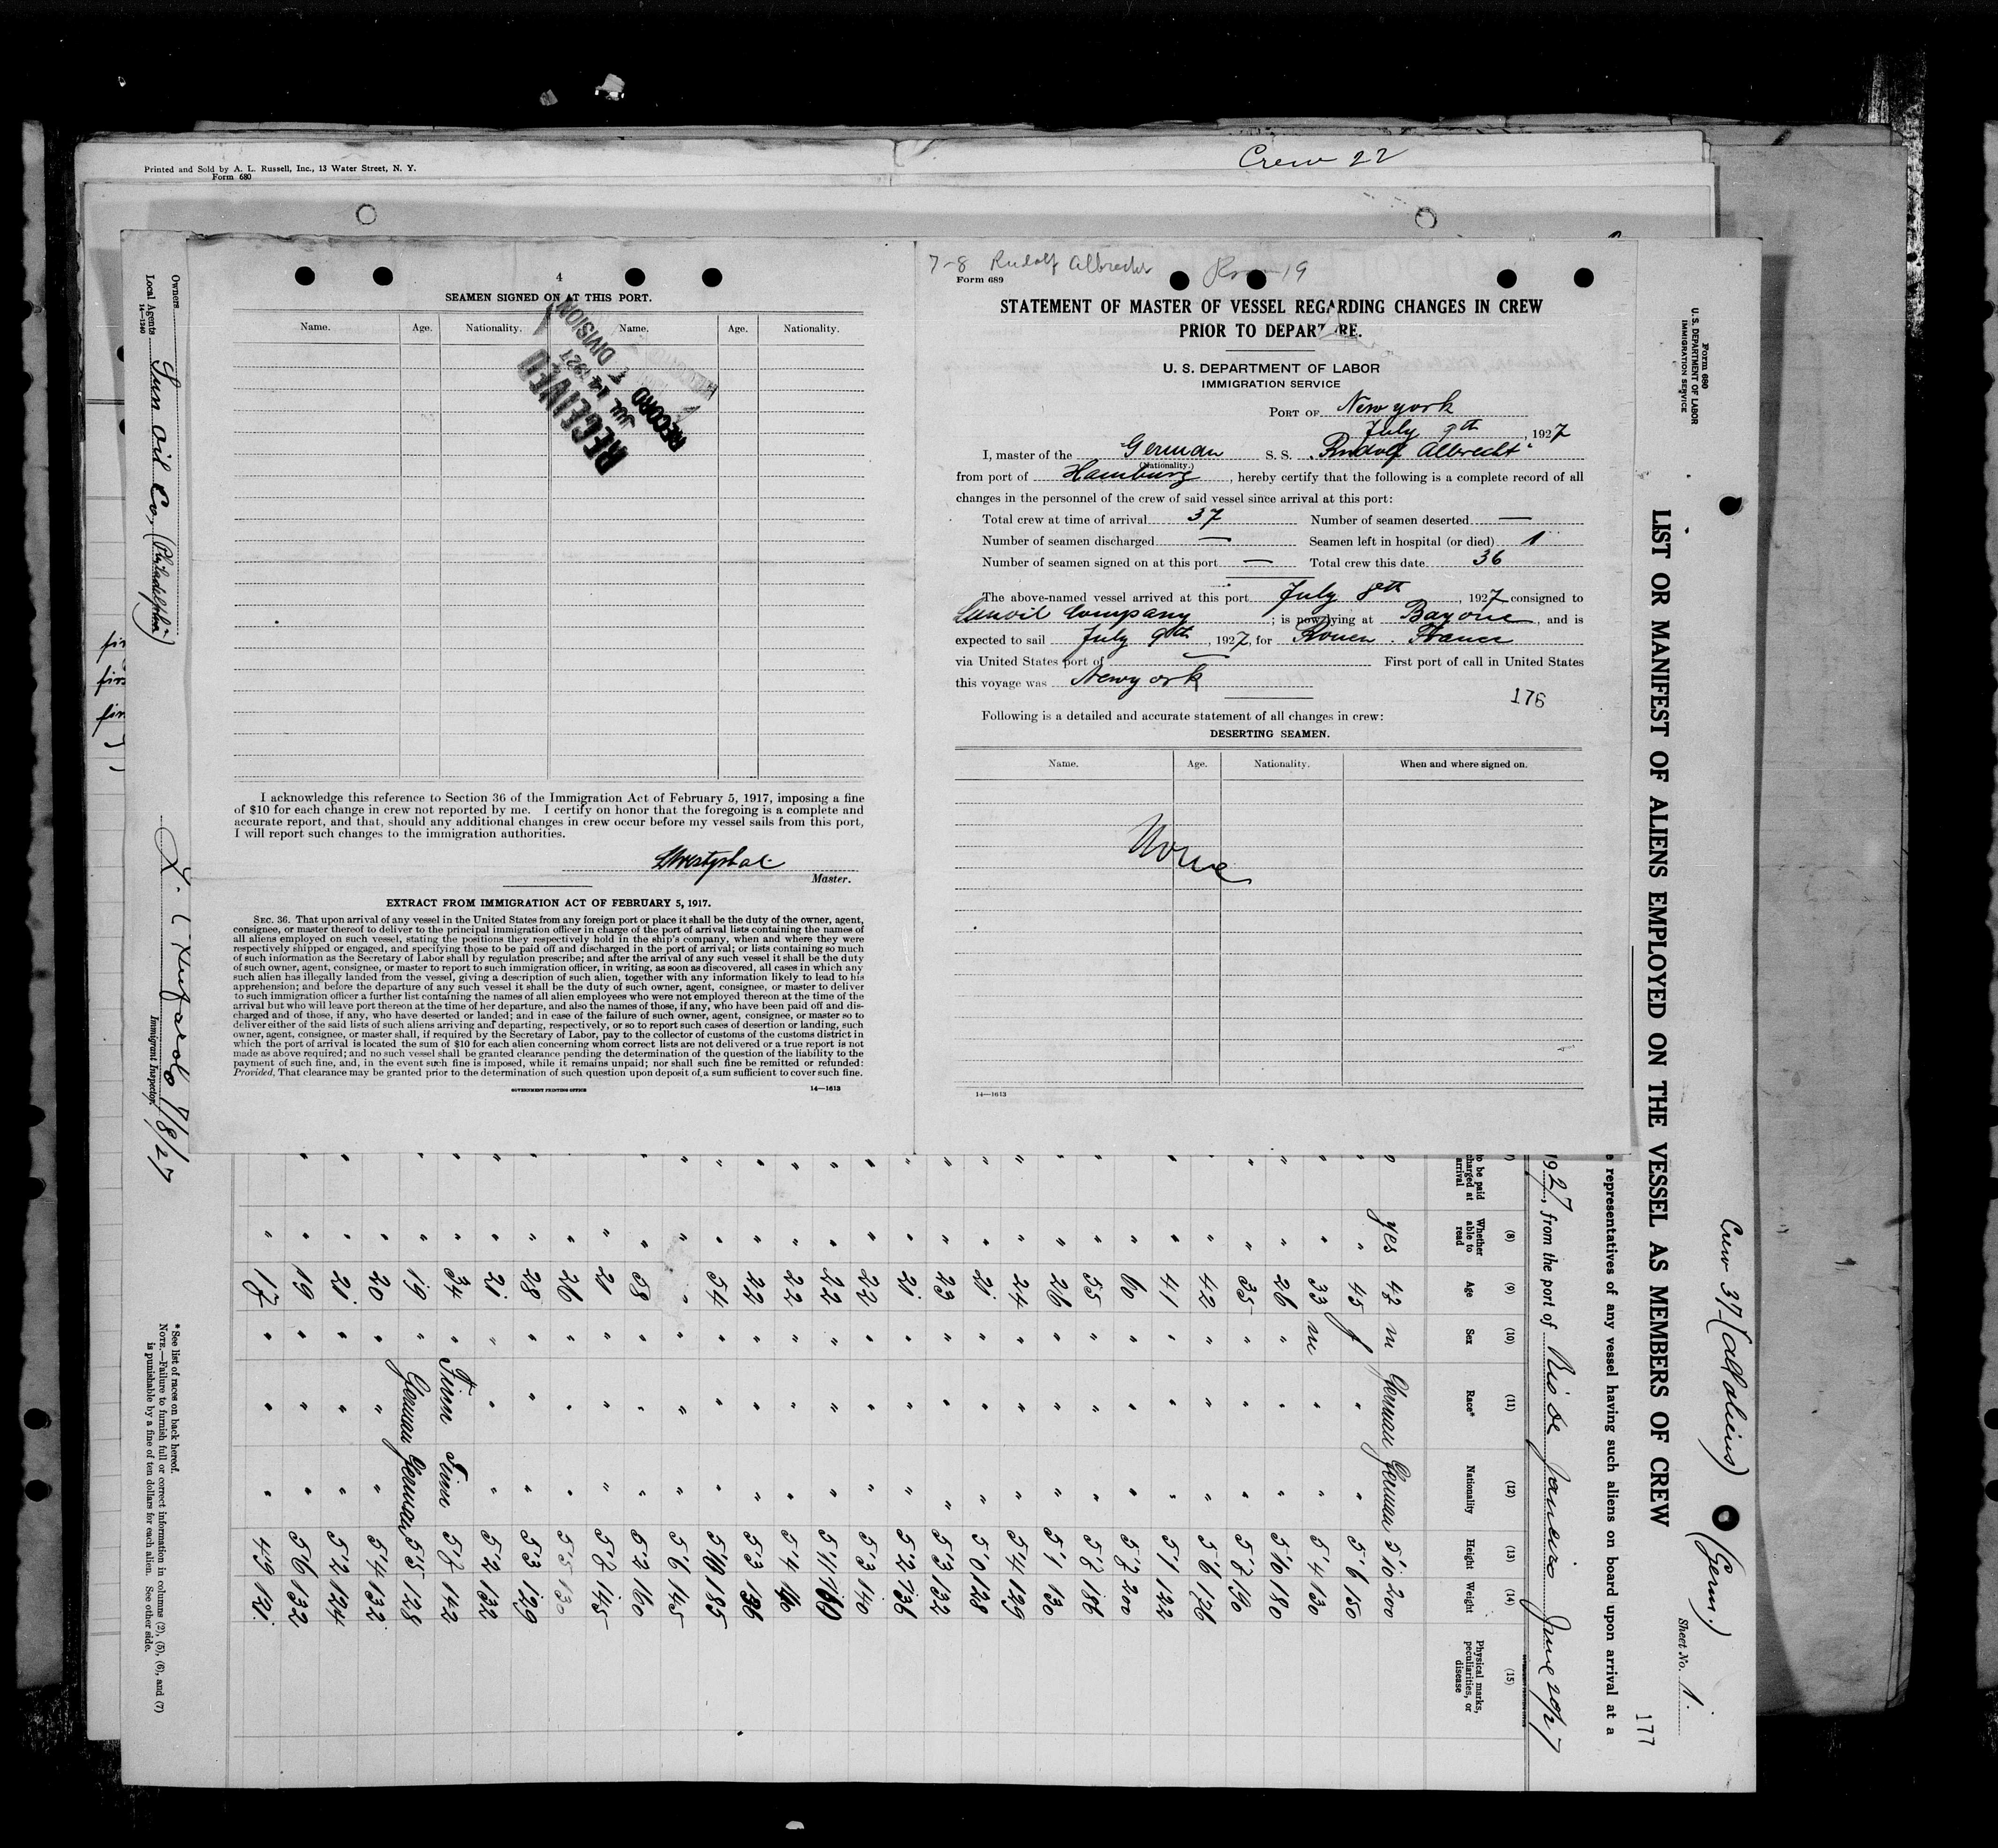 Printed and Sold by A. L. Russell, Inc., 13 Water Street, N. Y.
Form 680
Crew 22
4
SEAMEN SIGNED ON AT THIS PORT.
Name. Age. Nationality. Name. Age. Nationality.
RECEIVED
JUL 14 1927
RECORD DIVISION
I acknowledge this reference to Section 36 of the Immigration Act of February 5, 1917, imposing a fine
of $10 for each change in crew not reported by me. I certify on honor that the foregoing is a complete and
accurate report, and that, should any additional changes in crew occur before my vessel sails from this port,
I will report such changes to the immigration authorities.
Westphal
Master.
EXTRACT FROM IMMIGRATION ACT OF FEBRUARY 5, 1917.
SEC. 36. That upon arrival of any vessel in the United States from any foreign port or place it shall be the duty of the owner, agent,
consignee, or master thereof to deliver to the principal immigration officer in charge of the port of arrival lists containing the names of
all aliens employed on such vessel, stating the positions they respectively hold in the ship's company, when and where they were
respectively shipped or engaged, and specifying those to be paid off and discharged in the port of arrival; or lists containing so much
of such information as the Secretary of Labor shall by regulation prescribe; and after the arrival of any such vessel it shall be the duty
of such owner, agent, consignee, or master to report to such immigration officer, in writing, as soon as discovered, all cases in which any
such alien has illegally landed from the vessel, giving a description of such alien, together with any information likely to lead to his
apprehension; and before the departure of any such vessel it shall be the duty of such owner, agent, consignee, or master to deliver
to such immigration officer a further list containing the names of all alien employees who were not employed thereon at the time of the
arrival but who will leave port thereon at the time of her departure, and also the names of those, if any, who have been paid off and dis-
charged and of those, if any, who have deserted or landed; and in case of the failure of such owner, agent, consignee, or master so to
deliver either of the said lists of such aliens arriving and departing, respectively, or so to report such cases of desertion or landing, such
owner, agent, consignee, or master shall, if required by the Secretary of Labor, pay to the collector of customs of the customs district in
which the port of arrival is located the sum of $10 for each alien concerning whom correct lists are not delivered or a true report is not
made as above required; and no such vessel shall be granted clearance pending the determination of the question of the liability to the
payment of such fine, and, in the event such fine is imposed, while it remains unpaid; nor shall such fine be remitted or refunded:
Provided, That clearance may be granted prior to the determination of such question upon deposit of a sum sufficient to cover such fine.
GOVERNMENT PRINTING OFFICE 14—1613
7-8 Rudolf Albrecht 19
Form 689
STATEMENT OF MASTER OF VESSEL REGARDING CHANGES IN CREW
PRIOR TO DEPARTURE.
U. S. DEPARTMENT OF LABOR
IMMIGRATION SERVICE
PORT OF New york
July 9th, 1927
I, master of the German S. S. "Rudolf Albrecht"
(Nationality.)
from port of Hamburg, hereby certify that the following is a complete record of all
changes in the personnel of the crew of said vessel since arrival at this port:
Total crew at time of arrival 37 Number of seamen deserted —
Number of seamen discharged — Seamen left in hospital (or died) 1
Number of seamen signed on at this port — Total crew this date 36
The above-named vessel arrived at this port July 8th, 1927 consigned to
Sunoil Company; is now lying at Bayone, and is
expected to sail July 9th, 1927, for Rouen. France
via United States port of — First port of call in United States
this voyage was Newyork
176
Following is a detailed and accurate statement of all changes in crew:
DESERTING SEAMEN.
Name. Age. Nationality. When and where signed on.
None
14—1613
Form 680
U. S. DEPARTMENT OF LABOR
IMMIGRATION SERVICE
Crew 37 (all aliens) (Germ.)
Sheet No. 1.
177
LIST OR MANIFEST OF ALIENS EMPLOYED ON THE VESSEL AS MEMBERS OF CREW
representatives of any vessel having such aliens on board upon arrival at a
1927, from the port of Rio de Janeiro June 20th
(8) (9) (10) (11) (12) (13) (14) (15)
to be paid charged at arrival Whether able to read Age Sex Race* Nationality Height Weight Physical marks, peculiarities, or disease
" yes 42 m German German 5'10 200
" " 45 f " " 5'6 150
" " 33 m " " 5'4 130
" " 26 " " " 5'6 180
" " 35 " " " 5'7 190
" " 42 " " " 5'6 176
" " 41 " " " 5'1 122
" " 60 " " " 5'7 200
" " 55 " " " 5'7 186
" " 26 " " " 5'1 130
" " 24 " " " 5'4 129
" " 21 " " " 5'0 128
" " 23 " " " 5'3 132
" " 21 " " " 5'2 136
" " 22 " " " 5'3 140
" " 22 " " " 5'11 160
" " 22 " " " 5'4
" " 22 " " " 5'3 136
" " 54 " " " 5'10 185
" " " " " " 5'6 145
" " 58 " " " 5'2 160
" " 21 " " " 5'8 145
" " 26 " " " 5'5 130
" " 28 " " " 5'3 129
" " 21 " " " 5'2 132
" " 34 " Finn Finn 5'7 142
" " 19 " German German 5'5 128
" " 20 " " " 5'4 132
" " 21 " " " 5'2 124
" " 19 " " " 5'6 132
" " 17 " " " 4'9 121
* See list of races on back hereof.
NOTE.—Failure to furnish full or correct information in columns (2), (5), (6), and (7)
is punishable by a fine of ten dollars for each alien. See other side.
Owners
Local Agents Sun Oil Co, (Philadelphia)
14—1240
7/8/27
Immigrant Inspector.